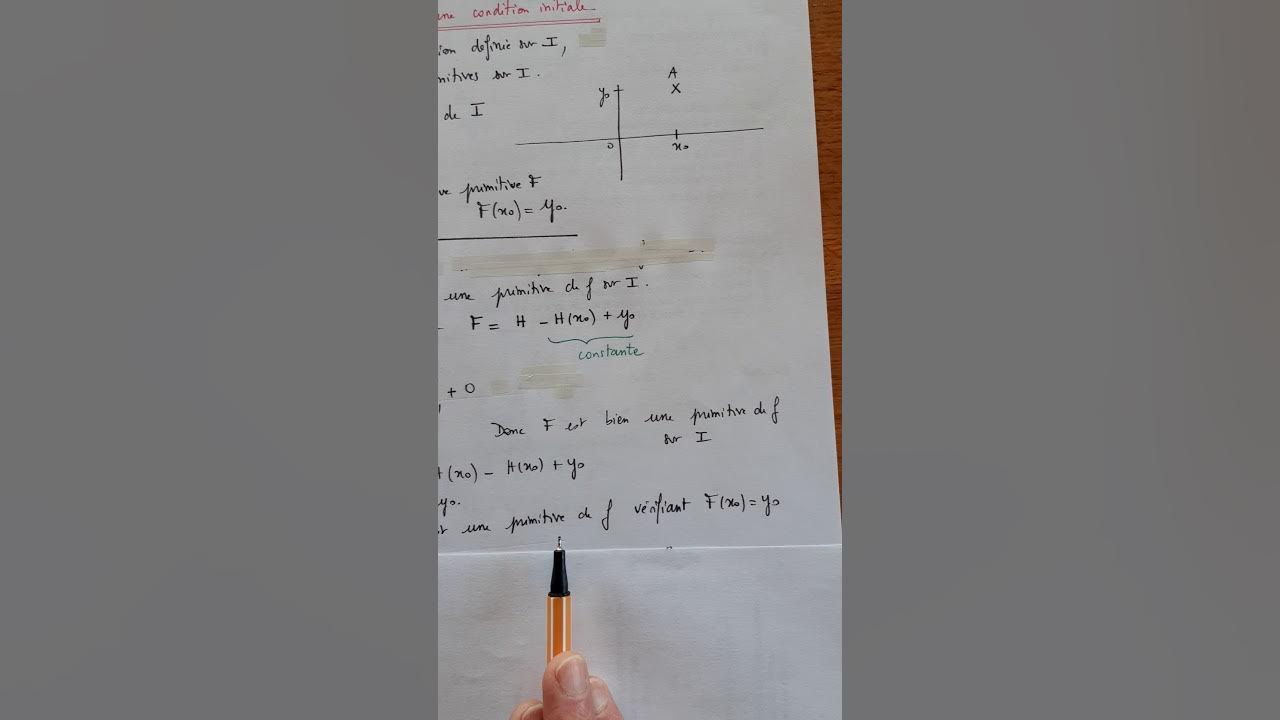 une condition initiale
ion définie sur I,
mitives sur I.
de I
A
X
y₀
0
x₀
ve primitive F
F(x₀) = y₀.
une primitive de f sur I.
- F = H - H(x₀) + y₀
constante
+ 0
Donc F est bien une primitive de f
sur I
H(x₀) - H(x₀) + y₀
y₀.
st une primitive de f vérifiant F(x₀) = y₀